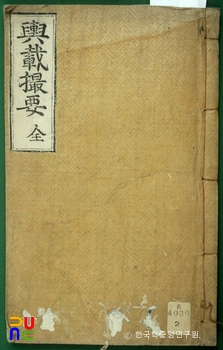 輿載撮要 全
4080
2
ⓒ 한국학중앙연구원